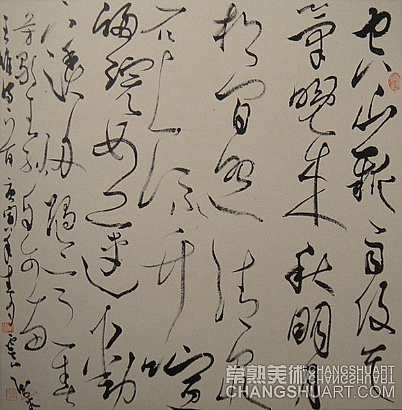 空山新雨後天
氣晚来秋明月
松间照清泉
石上流竹喧
歸浣女蓮動
下漁舟随意春
芳歇王孙自可留
王维诗一首 庚寅
常熟美术 CHANGSHUART